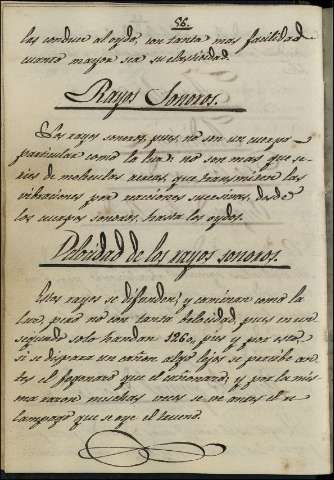 56.
las conduce al oydo, con tanta mas facilidad
cuanto mayor sea su elasticidad.
Rayos Sonoros.
Los rayos sonoros, pues, no son un cuerpo
particular como la luz; no son mas que se-
ries de moleculas aereas, que transmiten las
vibraciones por reacciones sucesivas, desde
los cuerpos sonoros, hasta los oydos.
Velocidad de los rayos sonoros.
Estos rayos se difunden, y caminan como la
luz, pero no con tanta velocidad, pues en un
segundo solo handan 1260, pies y por esto,
si se dispara un cañon algo lejos se percibe an-
tes el fogonazo que el cañonazo; y por la mis-
ma razon muchas veces se ve antes el re-
lampago que se oye el trueno.